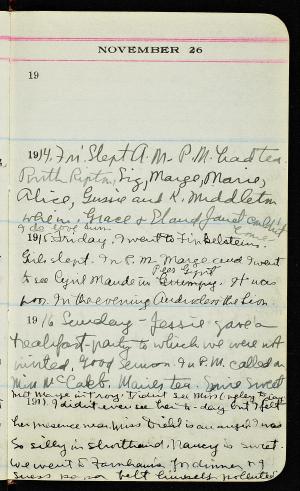 NOVEMBER 26
19
1914. Fri. Slept A.M. P.M. had tea.
Ruth Ripton, Sig, Marge, Marie,
Alice, Gussie and K. Middleton
were in. Grace & Janet couldn't
I do love him. come
1915 Friday. I went to Finkelsteins.
Girls slept. In P.M. Marge and I went
Peer Gynt
to see Cyril Maude in "Grumpy". It was
poor. In the evening Androcles & the Lion.
1916 Sunday - Jessie gave a
breakfast party to which we were not
invited, Good sermon. In P.M. called on
Miss McCabe. Maries tea. Anne Sweet
met Marge in Troy. I didn't see Miss today
191 I didn't even see her to-day but I felt
her presence near. Miss is an angel. I was
so silly in shorthand. Nancy is sweet.
We went to Farnham's for dinner &
Guess so felt himself